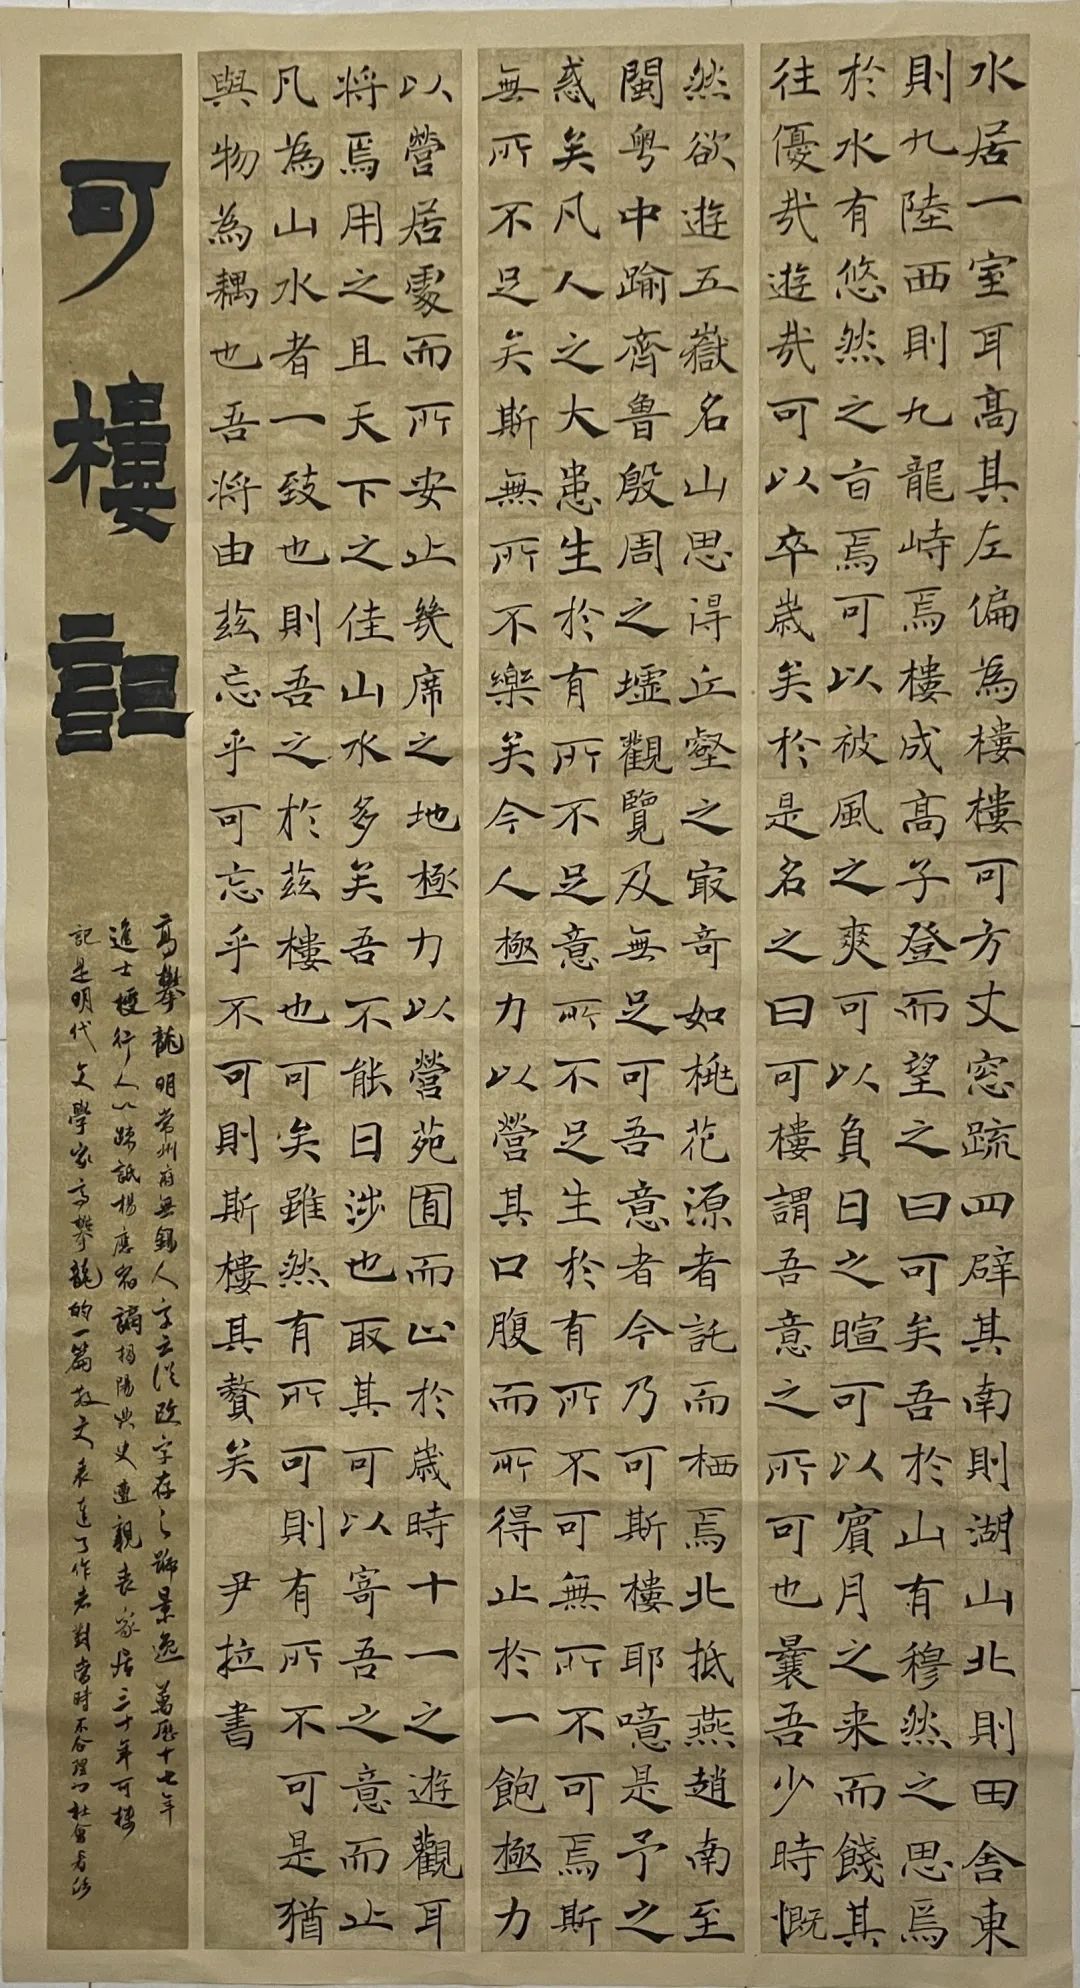 水居一室耳高其左偏為樓樓可方丈窓疏四辟其南則湖山北則田舍東
則九陸西則九龍峙焉樓成高子登而望之曰可矣吾於山有穆然之思焉
於水有悠然之㫖焉可以被風之爽可以負日之暄可以賓月之来而餞其
往優哉遊哉可以卒歲矣於是名之曰可樓謂吾意之所可也曩吾少時慨
然欲遊五嶽名山思得丘壑之㝡奇如桃花源者託而栖焉北抵燕趙南至
閩粤中踰齊魯殷周之墟觀覽及無足可吾意者今乃可斯樓耶噫是予之
惑矣凡人之大患生於有所不足意所不足生於有所不可無所不可焉斯
無所不足矣斯無所不樂矣今人極力以營其口腹而所得止於一飽極力
以營居處而所安止幾席之地極力以營苑囿而止於歲時十一之遊觀耳
将焉用之且天下之佳山水多矣吾不能日涉也取其可以寄吾之意而止
凡為山水者一致也則吾之於茲樓也可矣雖然有所可則有所不可是猶
與物為耦也吾将由茲忘乎可忘乎不可則斯樓其贅矣 尹拉書
可樓記
高攀龍明常州府無錫人字云從改字存之號景逸 萬歷十七年
進士授行人以疏詆楊應宿謫揭陽典史遭親喪家居三十年可樓
記是明代文學家高攀龍的一篇散文表達了作者對當時不合理的社會看法